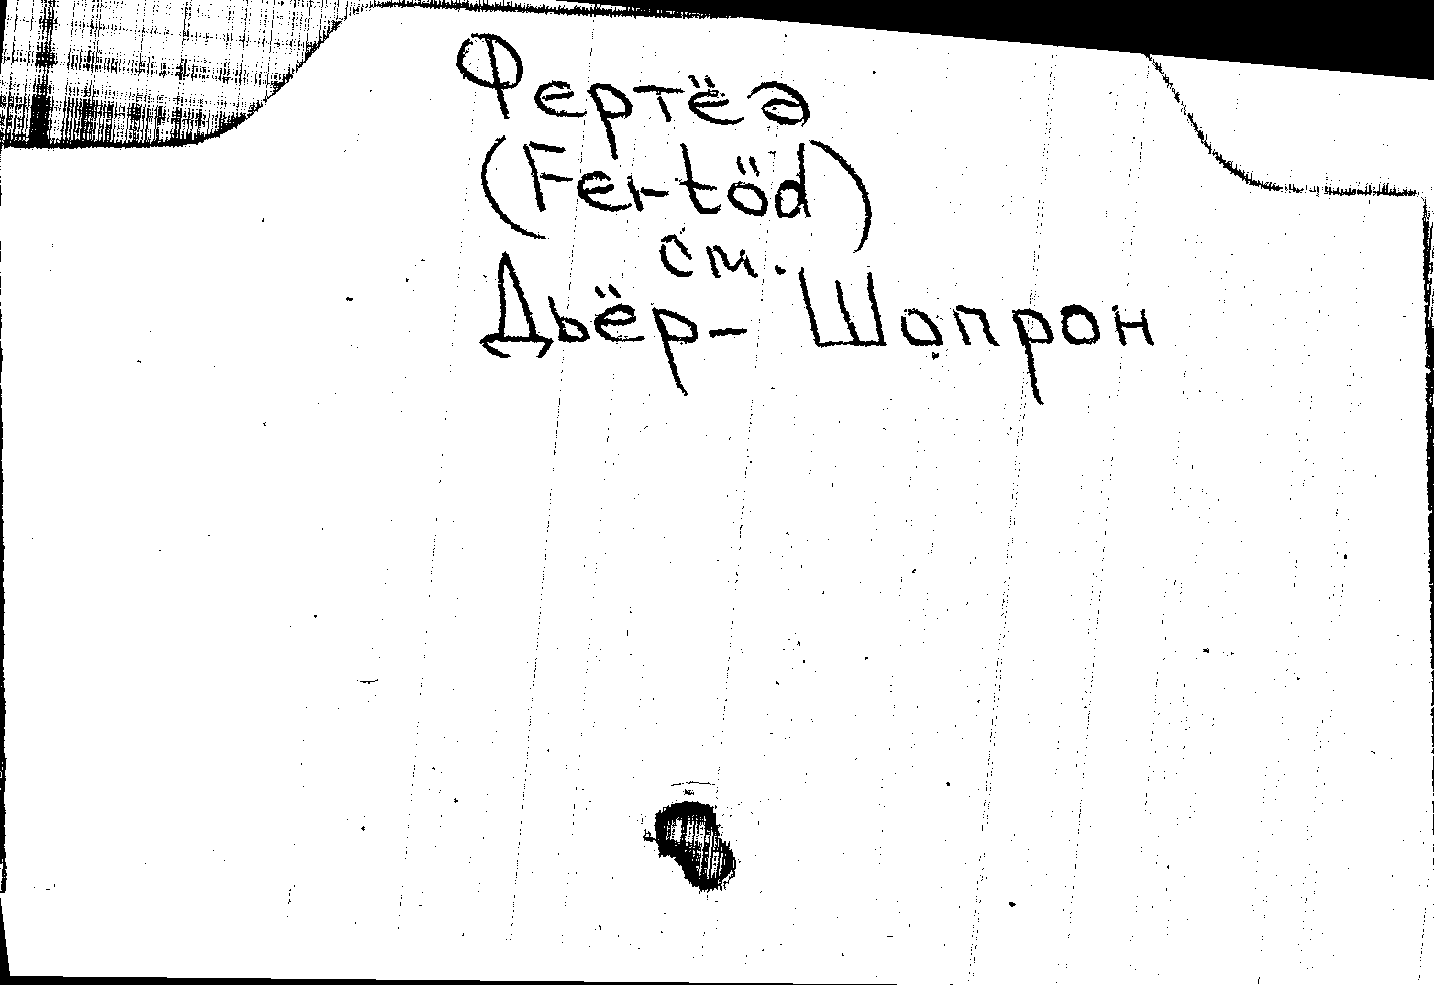 Фертёд
(Fertöd)
см.
Дьёр- Шопрон